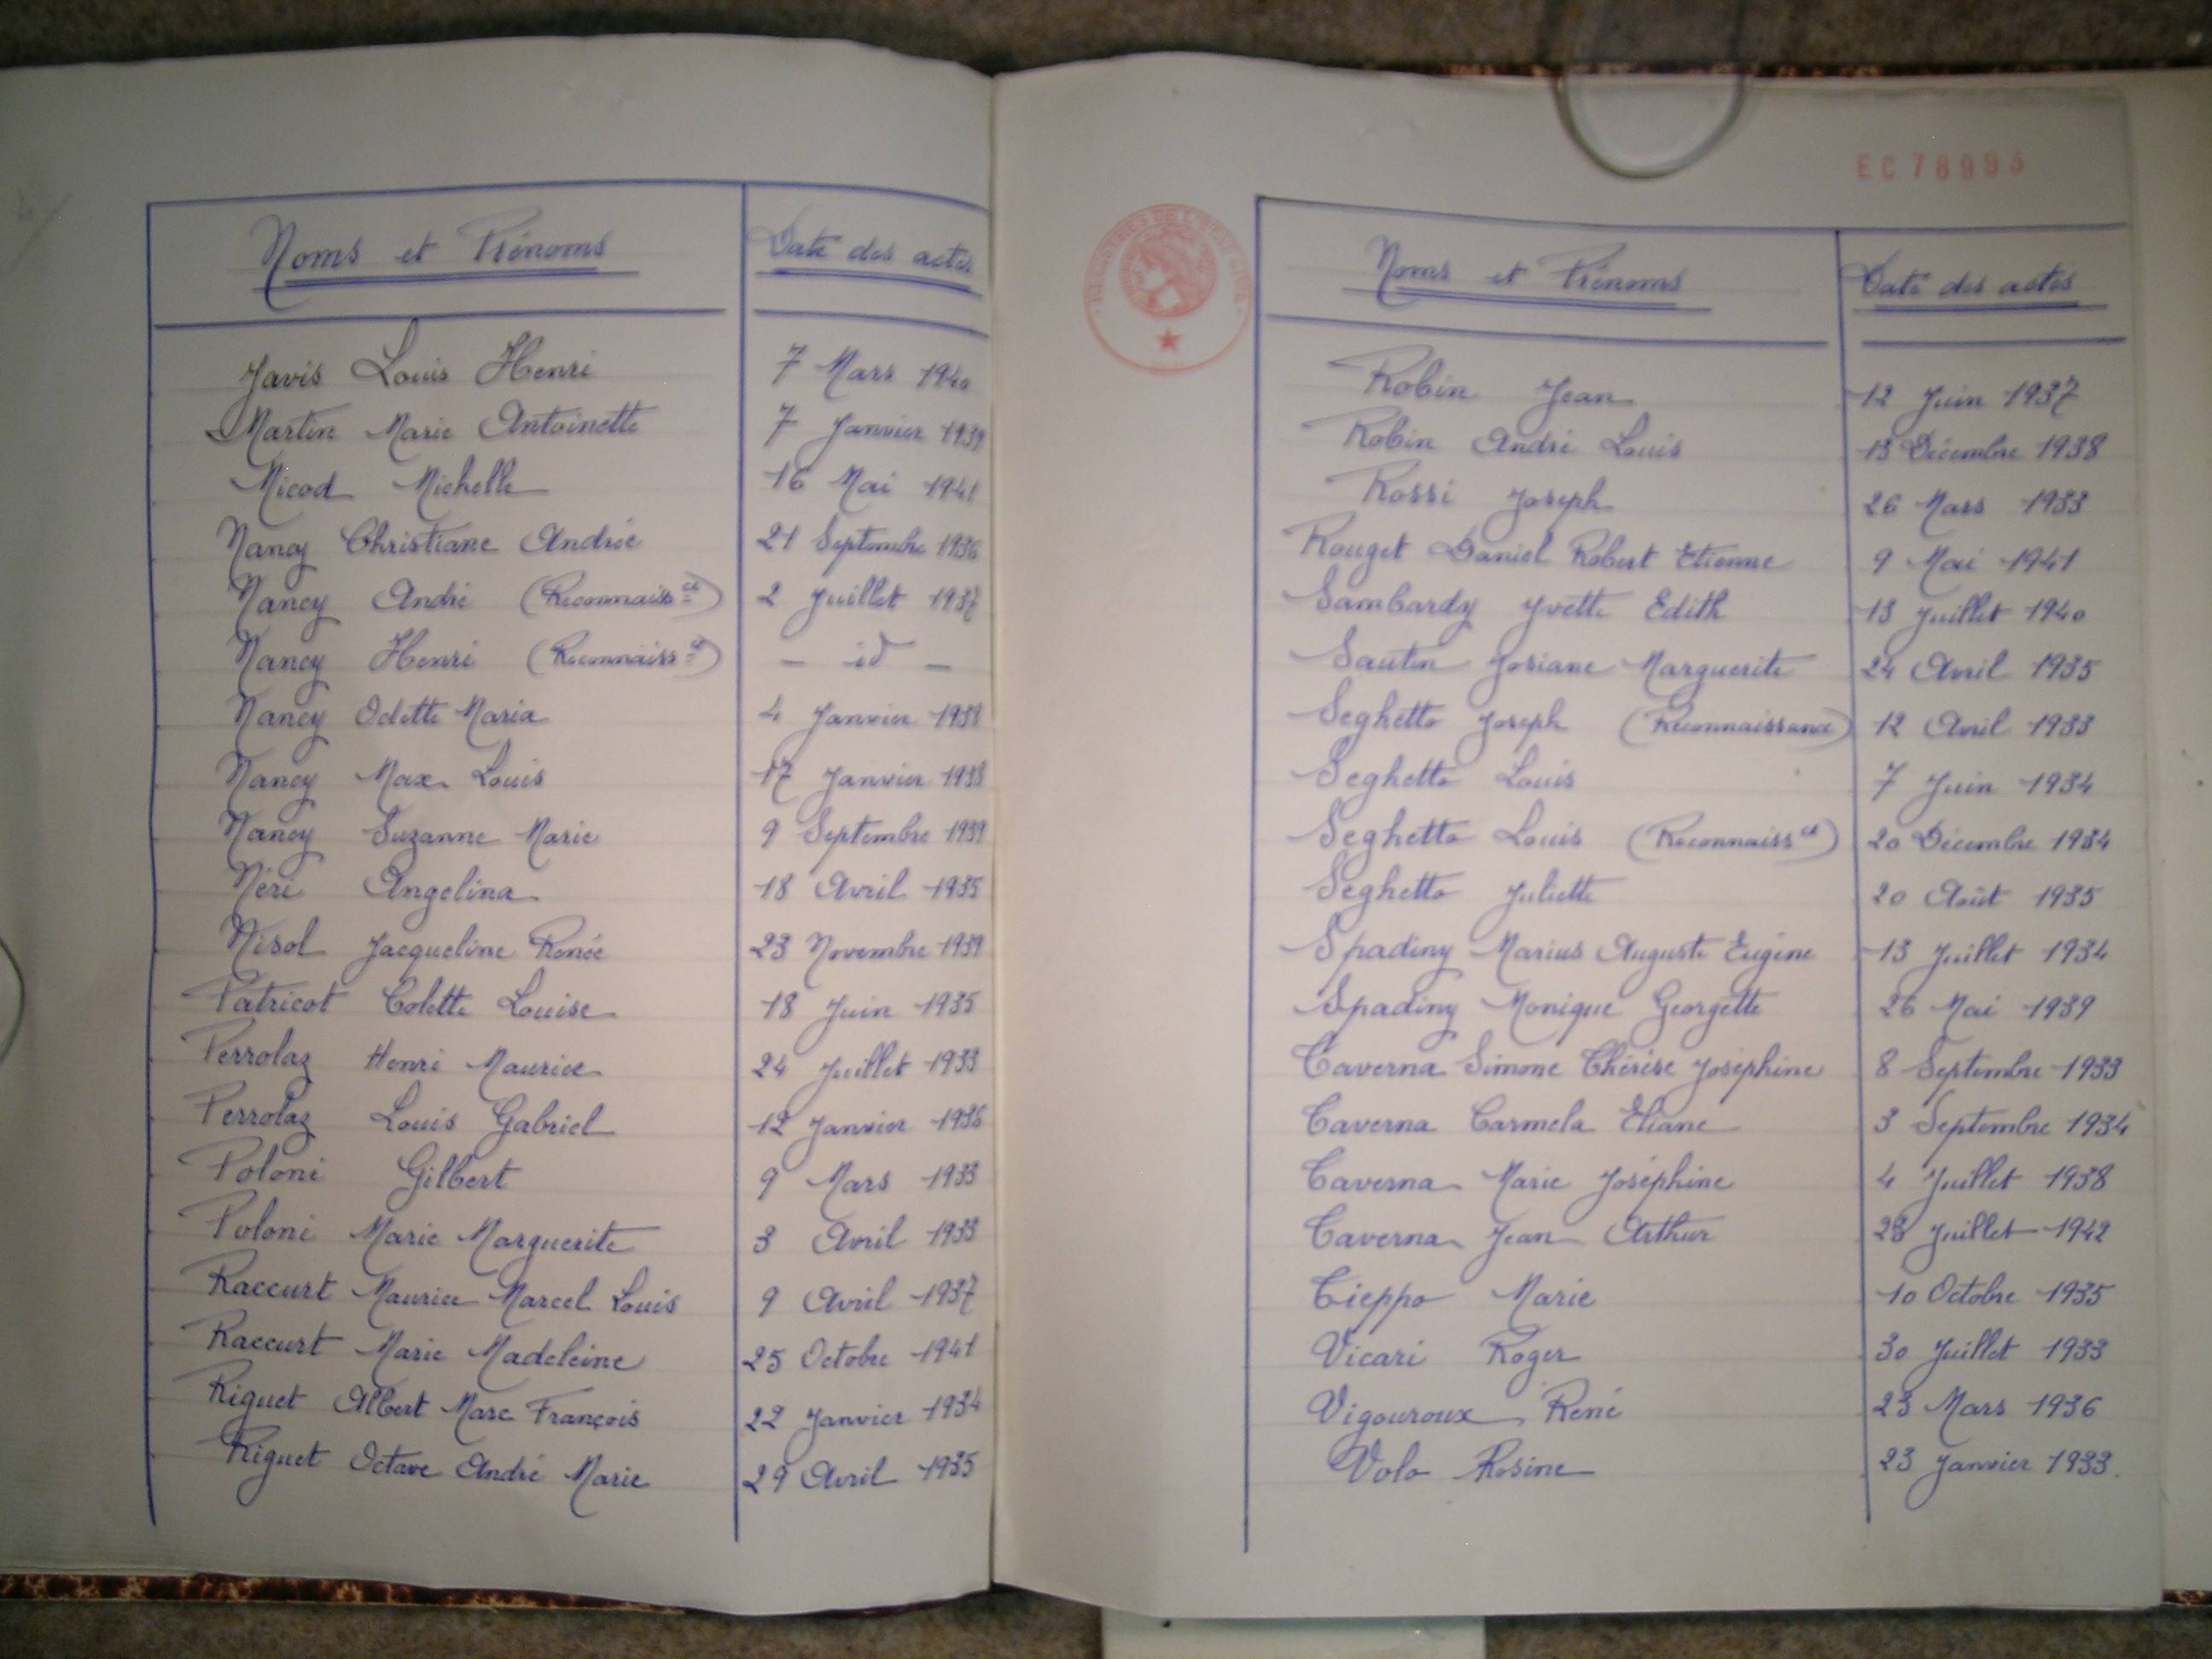 Noms et Prénoms Date des actes
Javis Louis Henri 7 Mars 1940
Martin Marie Antoinette 7 Janvier 1939
Micod Michelle 16 Mai 1941
Nancy Christiane Andrée 21 Septembre 1936
Nancy André (Reconnaiss ce) 2 Juillet 1937
Nancy Henri (Reconnaiss ce) – id –
Nancy Odette Maria 4 Janvier 1938
Nancy Max Louis 17 Janvier 1938
Nancy Suzanne Marie 9 Septembre 1939
Néri Angelina 18 Avril 1935
Nisol Jacqueline Renée 23 Novembre 1939
Patricot Colette Louise 18 Juin 1935
Perrolaz Henri Maurice 24 Juillet 1933
Perrolaz Louis Gabriel 12 Janvier 1936
Poloni Gilbert 9 Mars 1933
Poloni Marie Marguerite 3 Avril 1933
Raccurt Maurice Marcel Louis 9 Avril 1937
Raccurt Marie Madeleine 25 Octobre 1941
Riguet Albert Marc François 22 Janvier 1934
Riguet Octave André Marie 29 Avril 1935
Noms et Prénoms Date des actes
Robin Jean 12 Juin 1937
Robin André Louis 13 Décembre 1938
Rossi Joseph 26 Mars 1933
Rouget Daniel Robert Etienne 9 Mai 1941
Sambardy Yvette Edith 13 Juillet 1940
Sautin Josiane Marguerite 24 Avril 1935
Seghetto Joseph (Reconnaissance) 12 Avril 1933
Seghetto Louis 7 Juin 1934
Seghetto Louis (Reconnaiss ce) 20 Décembre 1934
Seghetto Juliette 20 Août 1935
Spadiny Marius Auguste Eugène 13 Juillet 1934
Spadiny Monique Georgette 26 Mai 1939
Taverna Simone Thérèse Joséphine 8 Septembre 1933
Taverna Carmela Eliane 3 Septembre 1934
Taverna Marie Joséphine 4 Juillet 1938
Taverna Jean Arthur 28 Juillet 1942
Tieppo Marie 10 Octobre 1935
Vicari Roger 30 Juillet 1933
Vigouroux René 23 Mars 1936
Volo Rosine 23 Janvier 1933.